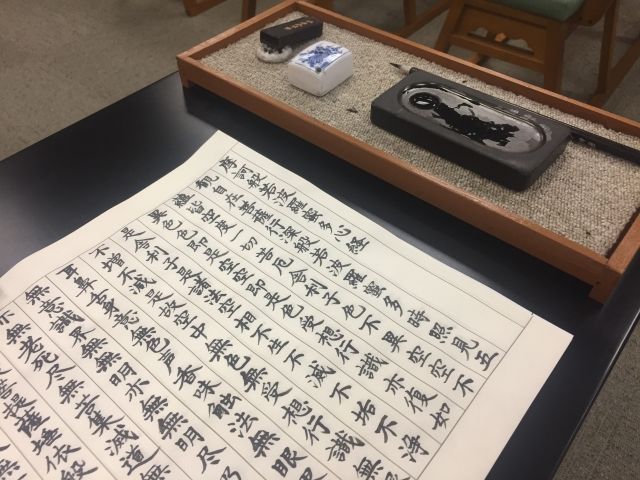 摩訶般若波羅蜜多心経
観自在菩薩行深般若波羅蜜多時照見五
蘊皆空度一切苦厄舎利子色不異空空不
異色色即是空空即是色受想行識亦復如
是舎利子是諸法空相不生不滅不垢不浄
不増不減是故空中無色無受想行識無眼
耳鼻舌身意無色声香味触法無眼
無意識界無無明亦無無明尽乃
亦無老死尽無苦集滅道無
菩提薩埵依般